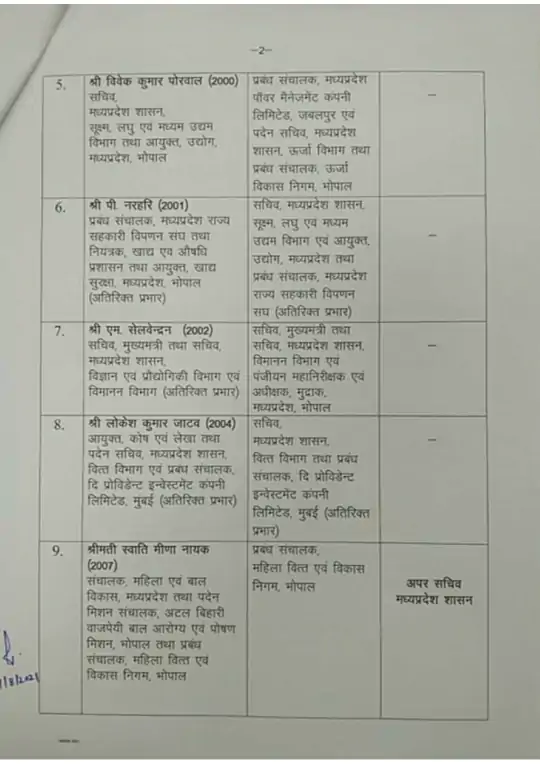 –2–
5.
श्री विवेक कुमार पोरवाल (2000)
सचिव,
मध्यप्रदेश शासन,
सूक्ष्म, लघु एवं मध्यम उद्यम
विभाग तथा आयुक्त, उद्योग,
मध्यप्रदेश, भोपाल
प्रबंध संचालक, मध्यप्रदेश
पॉवर मैनेजमेंट कंपनी
लिमिटेड, जबलपुर एवं
पदेन सचिव, मध्यप्रदेश
शासन, ऊर्जा विभाग तथा
प्रबंध संचालक, ऊर्जा
विकास निगम, भोपाल
–
6.
श्री पी. नरहरि (2001)
प्रबंध संचालक, मध्यप्रदेश राज्य
सहकारी विपणन संघ तथा
नियंत्रक, खाद्य एवं औषधि
प्रशासन तथा आयुक्त, खाद्य
सुरक्षा, मध्यप्रदेश, भोपाल
(अतिरिक्त प्रभार)
सचिव, मध्यप्रदेश शासन,
सूक्ष्म, लघु एवं मध्यम
उद्यम विभाग एवं आयुक्त,
उद्योग, मध्यप्रदेश तथा
प्रबंध संचालक, मध्यप्रदेश
राज्य सहकारी विपणन
संघ (अतिरिक्त प्रभार)
–
7.
श्री एम. सेलवेन्द्रन (2002)
सचिव, मुख्यमंत्री तथा सचिव,
मध्यप्रदेश शासन,
विज्ञान एवं प्रौद्योगिकी विभाग एवं
विमानन विभाग (अतिरिक्त प्रभार)
सचिव, मुख्यमंत्री तथा
सचिव, मध्यप्रदेश शासन,
विमानन विभाग एवं
पंजीयन महानिरीक्षक एवं
अधीक्षक, मुद्रांक,
मध्यप्रदेश, भोपाल
–
8.
श्री लोकेश कुमार जाटव (2004)
आयुक्त, कोष एवं लेखा तथा
पदेन सचिव, मध्यप्रदेश शासन,
वित्त विभाग एवं प्रबंध संचालक,
दि प्रोविडेन्ट इन्वेस्टमेंट कंपनी
लिमिटेड, मुंबई (अतिरिक्त प्रभार)
सचिव,
मध्यप्रदेश शासन,
वित्त विभाग तथा प्रबंध
संचालक, दि प्रोविडेन्ट
इन्वेस्टमेंट कंपनी
लिमिटेड, मुंबई (अतिरिक्त
प्रभार)
–
9.
श्रीमती स्वाति मीणा नायक
(2007)
संचालक, महिला एवं बाल
विकास, मध्यप्रदेश तथा पदेन
मिशन संचालक, अटल बिहारी
वाजपेयी बाल आरोग्य एवं पोषण
मिशन, भोपाल तथा प्रबंध
संचालक, महिला वित्त एवं
विकास निगम, भोपाल
प्रबंध संचालक,
महिला वित्त एवं विकास
निगम, भोपाल
अपर सचिव
मध्यप्रदेश शासन